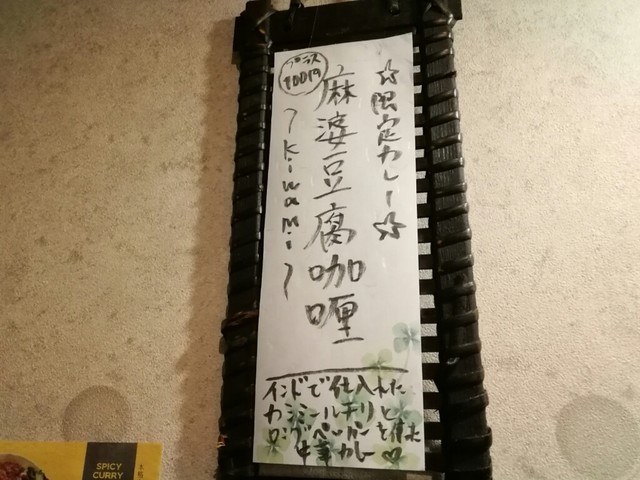 ☆限定カレー☆
プラス
100円
麻婆豆腐咖喱
～kiwami～
インドで仕入れた
カシミールチリと
ロングペッパーを使った
中華カレー♡
SPICY
CURRY